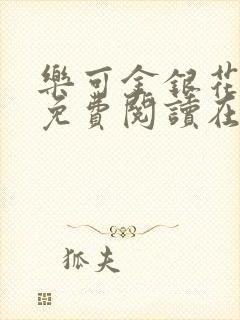 樂可金銀花
免費閱讀在
狐夫